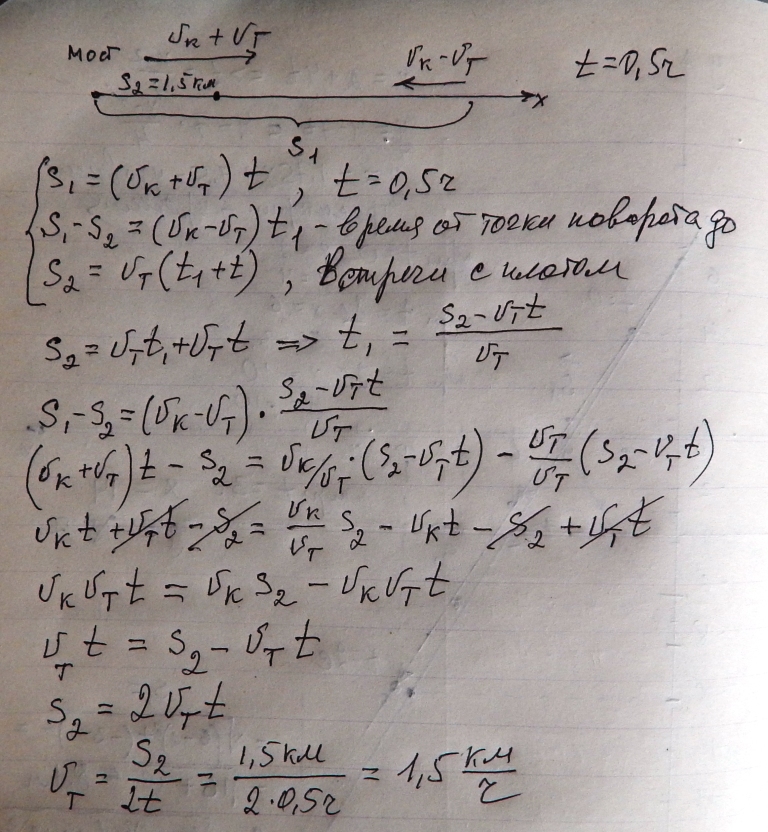 мост υк + υт
υк - υт
t = 0,5 ч
S2 = 1,5 км
x
S1
S1 = (υк + υт) t , t = 0,5 ч
S1 - S2 = (υк - υт) t1 - время от точки поворота до
S2 = υт (t1 + t) , встречи с плотом
S2 = υт t1 + υт t => t1 = (S2 - υт t)/υт
S1 - S2 = (υк - υт) · (S2 - υт t)/υт
(υк + υт) t - S2 = υк/υт · (S2 - υт t) - υт/υт (S2 - υт t)
υк t + υт t - S2 = υк/υт S2 - υк t - S2 + υт t
υк υт t = υк S2 - υк υт t
υт t = S2 - υт t
S2 = 2 υт t
υт = S2/2t = 1,5 км/2·0,5 ч = 1,5 км/ч